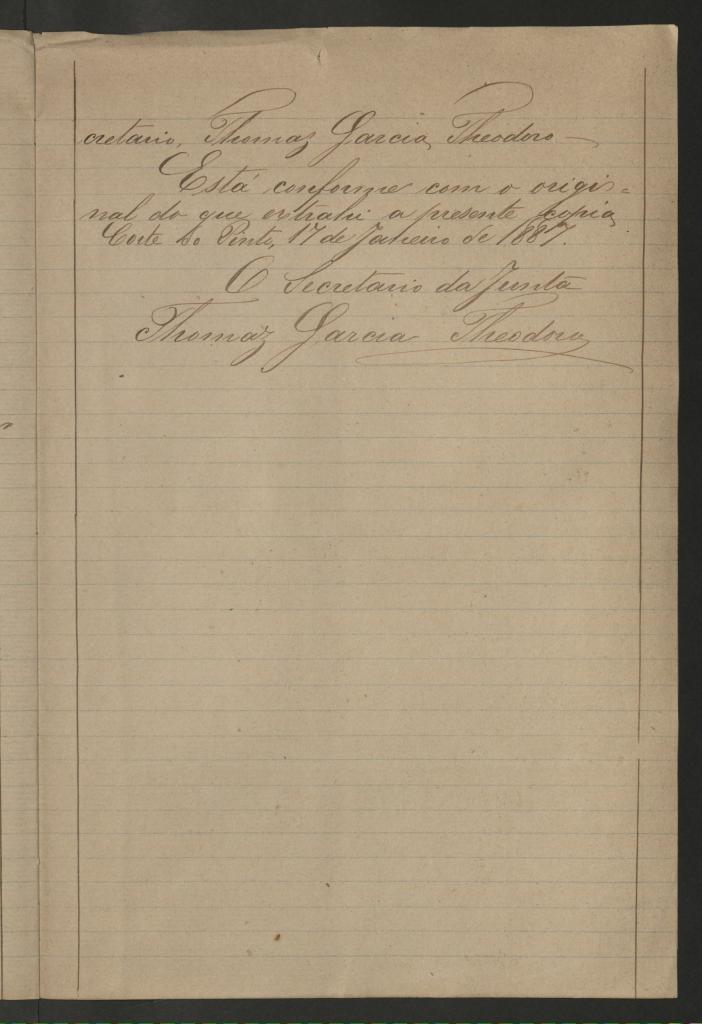 cretario, Thomaz Garcia Theodoro —
Está conforme com o origi=
nal do que extrahi a presente copia
Corte do Pinto, 17 de Janeiro de 1887.
O Secretario da Junta
Thomaz Garcia Theodoro